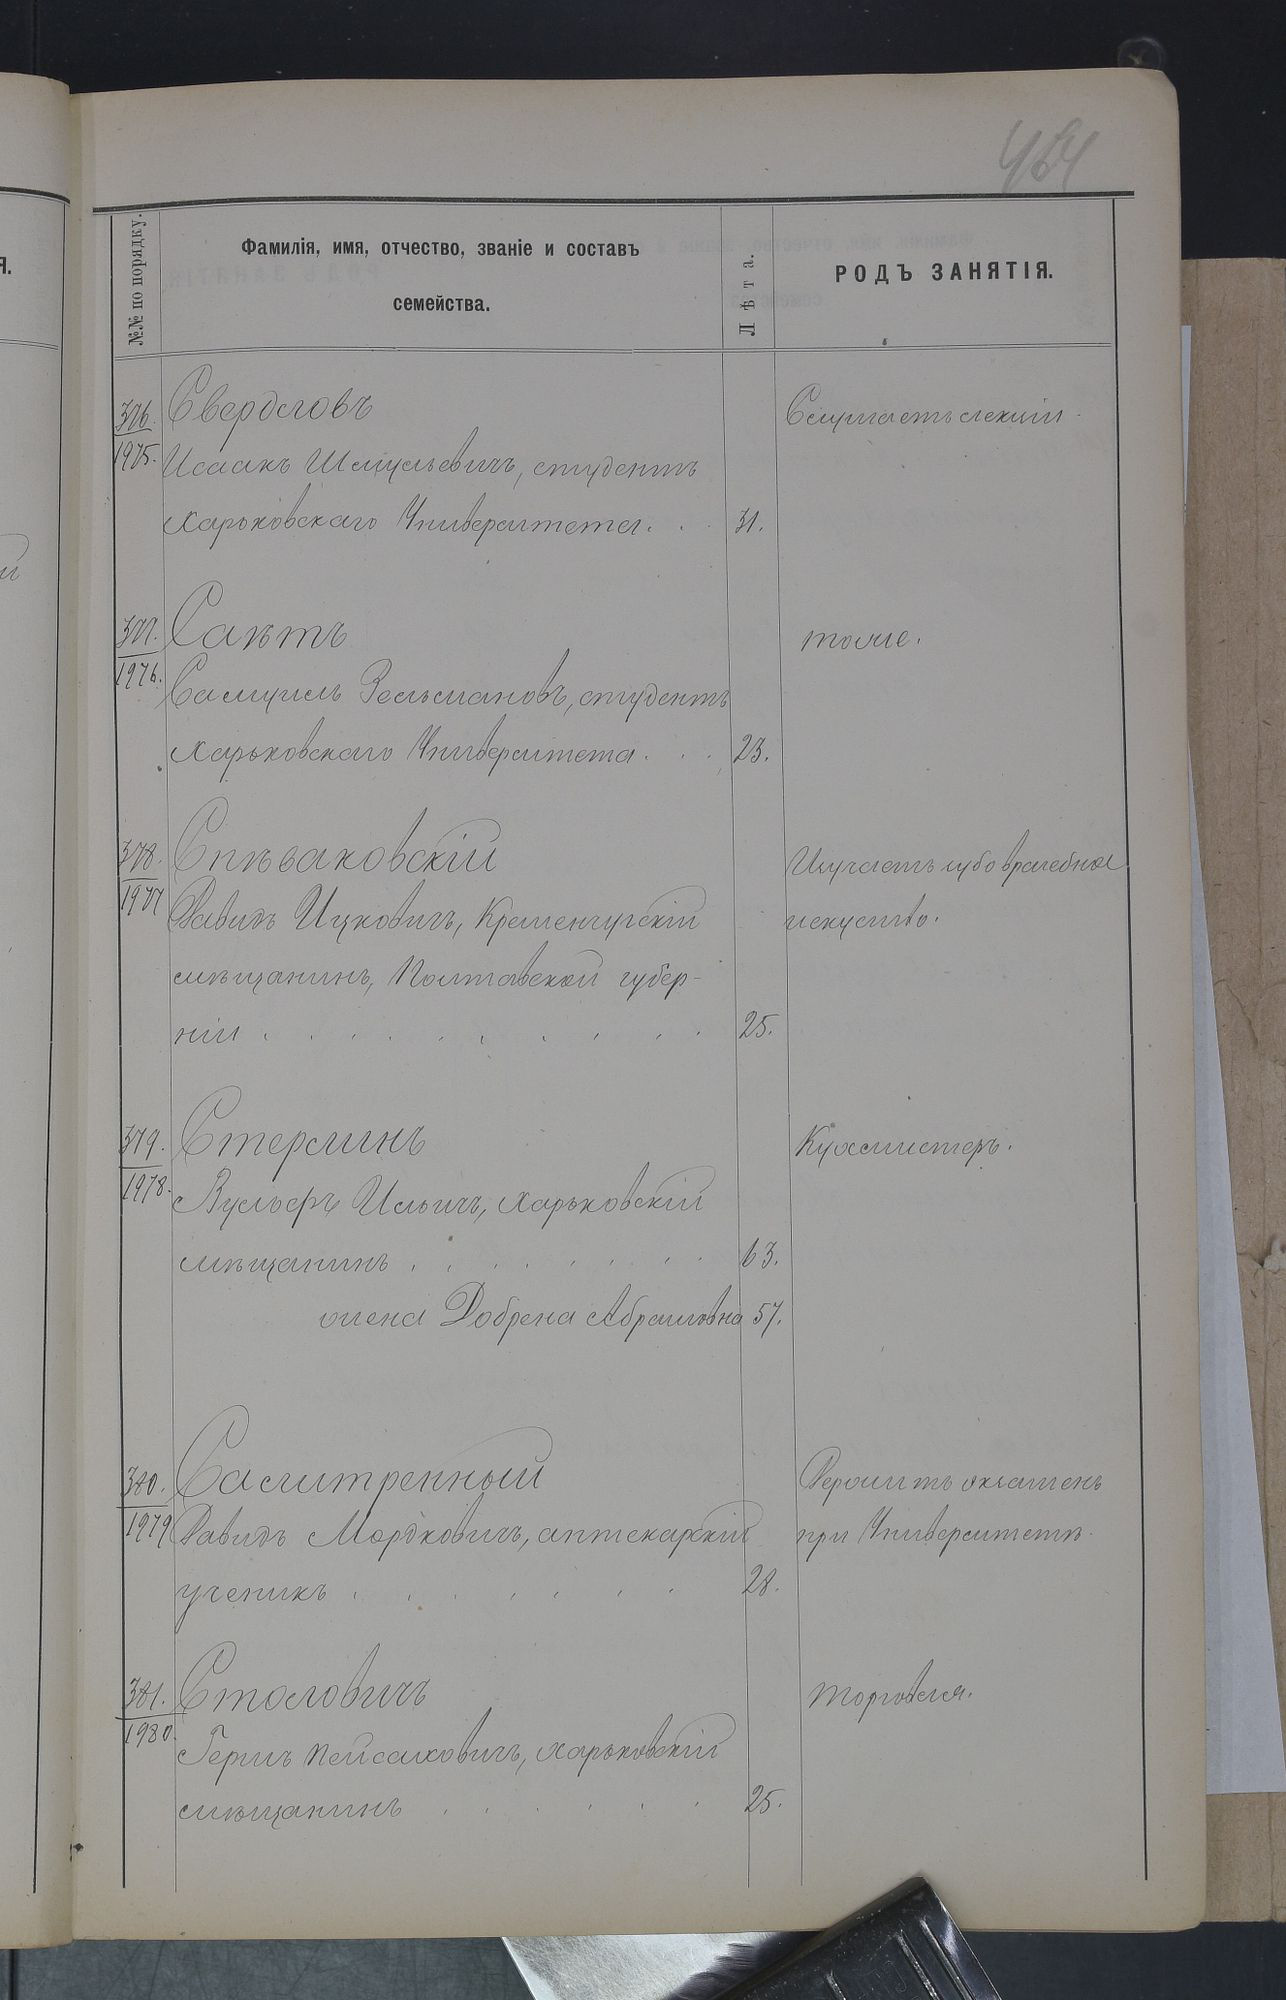 464
№№ по порядку.
Фамилія, имя, отчество, званіе и составъ
семейства.
Лѣта.
РОДЪ ЗАНЯТІЯ.
Я.
376.
1975.
Свердловъ
Слушаетъ лекціи
Исаакъ Шмульевичъ, студентъ
Харьковскаго Университета. . . 31.
377.
1976.
Самуилъ Зельмановъ, студентъ
тоже.
Харьковскаго Университета . . . 23.
378.
1977
Спѣваковскій
Изучаетъ зубоврачебное
Давидъ Ицковичъ, Кременчугскій
искуство.
мѣщанинъ, Полтавской губер-
ніи . . . . . . . . . 25.
379.
1978.
Стерлинъ
Кухмистеръ.
Вульфъ Ильичъ, Харьковскій
мѣщанинъ . . . . . . . . 63.
жена Добрена Абрамовна 57.
380.
1979
Салитренный
Держитъ экзаменъ
Давидъ Мордковичъ, аптекарскій
при Университетѣ.
ученикъ . . . . . . . 28.
381.
1980.
Столовичъ
торговля.
Гершъ Пейсаховичъ, Харьковскій
мѣщанинъ . . . . . . 25.